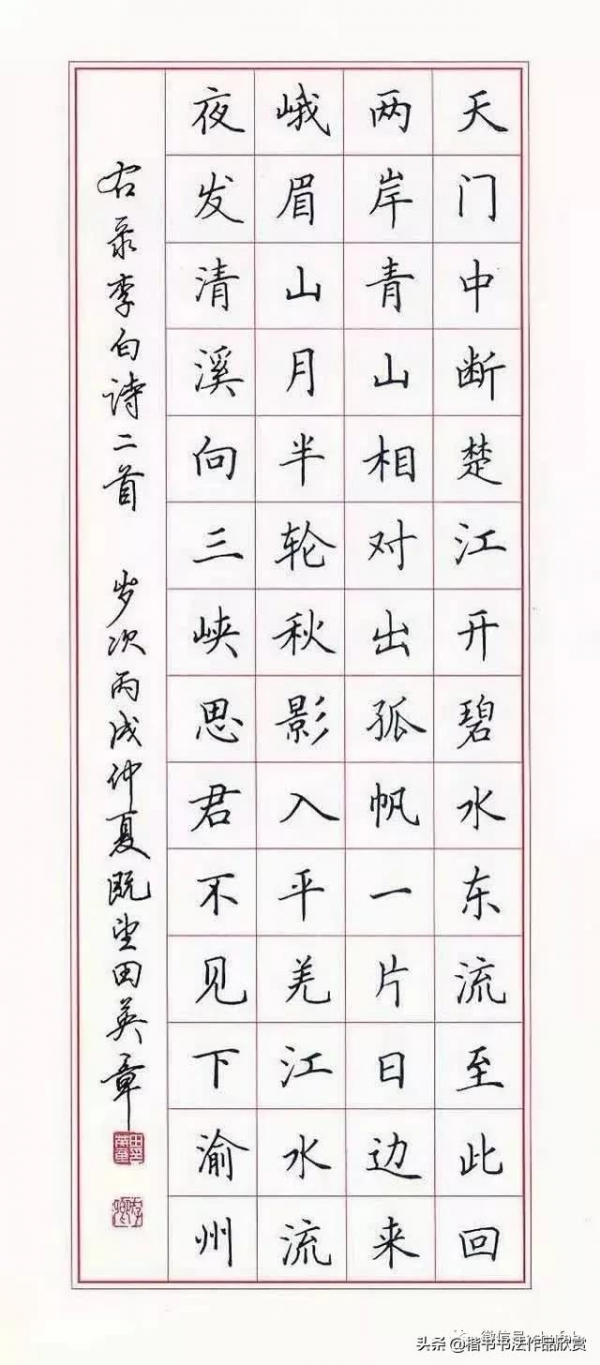 天门中断楚江开碧水东流至此回
两岸青山相对出孤帆一片日边来
峨眉山月半轮秋影入平羌江水流
夜发清溪向三峡思君不见下渝州
右录李白诗二首 岁次丙戌仲夏既望田英章
头条 @楷书书法作品欣赏